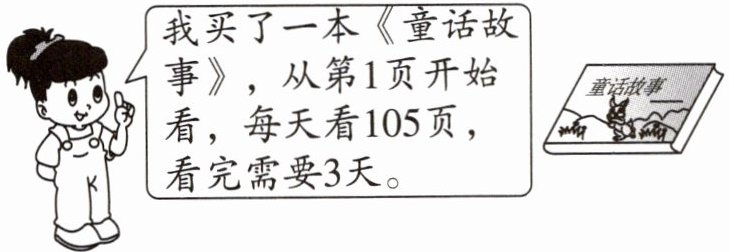 我买了一本《童话故
事》，从第1页开始
看，每天看105页，
看完需要3天。
童话故事